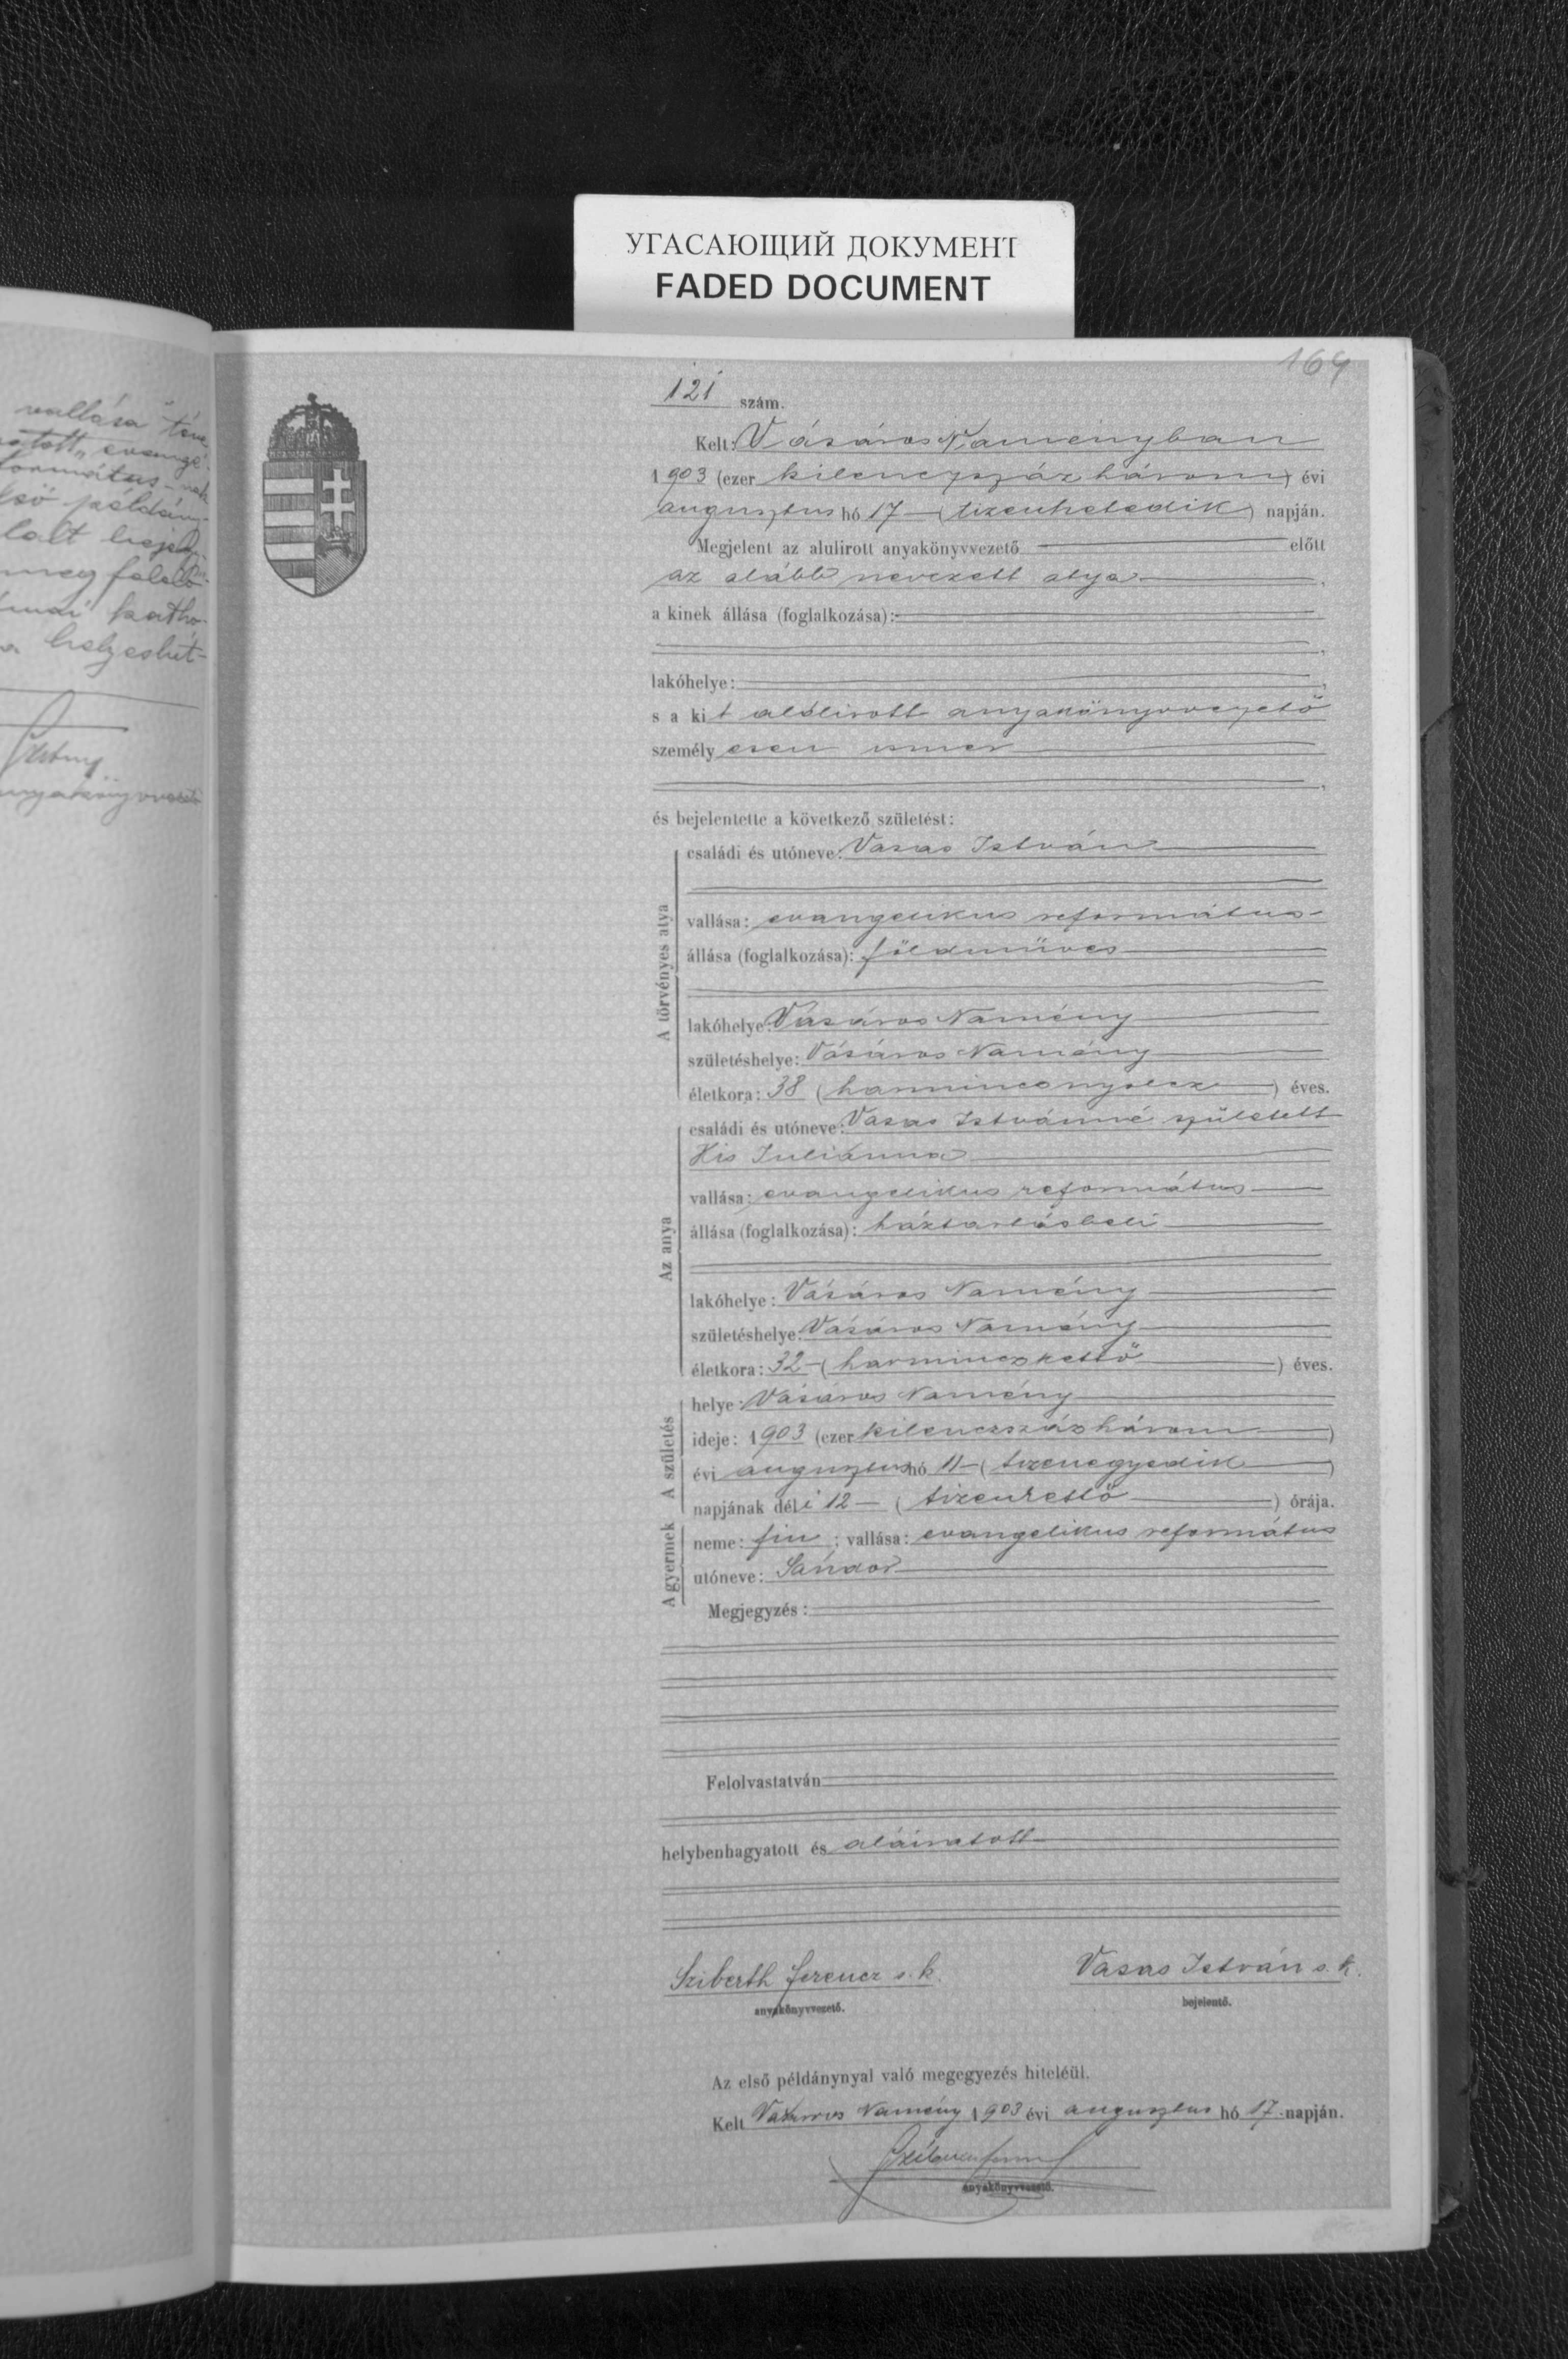 УГАСАЮЩИЙ ДОКУМЕНТ
FADED DOCUMENT
vallása
evangé
formátus-nak
ső példány
meg felelő
mai katho-
helyesbít-
164
121 szám.
Kelt: Vásáros Naményban
1903 (ezer kilenczszáz három) évi
augusztus hó 17 — (tizenhetedik) napján.
Megjelent az alulirott anyakönyvvezető előtt
az alább nevezett atya,
a kinek állása (foglalkozása):
lakóhelye:
s a kit alólirott anyakönyvvezető
személyesen ismer
és bejelentette a következő születést:
A törvényes atya
családi és utóneve: Vasas István
vallása: evangelikus református
állása (foglalkozása): földműves
lakóhelye: Vásáros Namény
születéshelye: Vásáros Namény
életkora: 38 (harmincznyolcz) éves.
Az anya
családi és utóneve: Vasas Istvánné született
Kis Juliánna
vallása: evangelikus református
állása (foglalkozása): háztartásbeli
lakóhelye: Vásáros Namény
születéshelye: Vásáros Namény
életkora: 32 — (harminczkettő) éves.
A születés
helye: Vásáros Namény
ideje: 1903 (ezer kilenczszázhárom)
évi augusztus hó 11 — (tizenegyedik)
napjának déli 12 — (tizenkettő) órája.
A gyermek
neme: fiu; vallása: evangelikus református
utóneve: Sándor
Megjegyzés:
Felolvastatván
helybenhagyatott és aláiratott
Sziberth Ferencz s. k. Vasas István s. k.
anyakönyvvezető. bejelentő.
Az első példánynyal való megegyezés hiteléül.
Kelt Vásáros Namény 1903 évi augusztus hó 17 napján.
anyakönyvvezető.